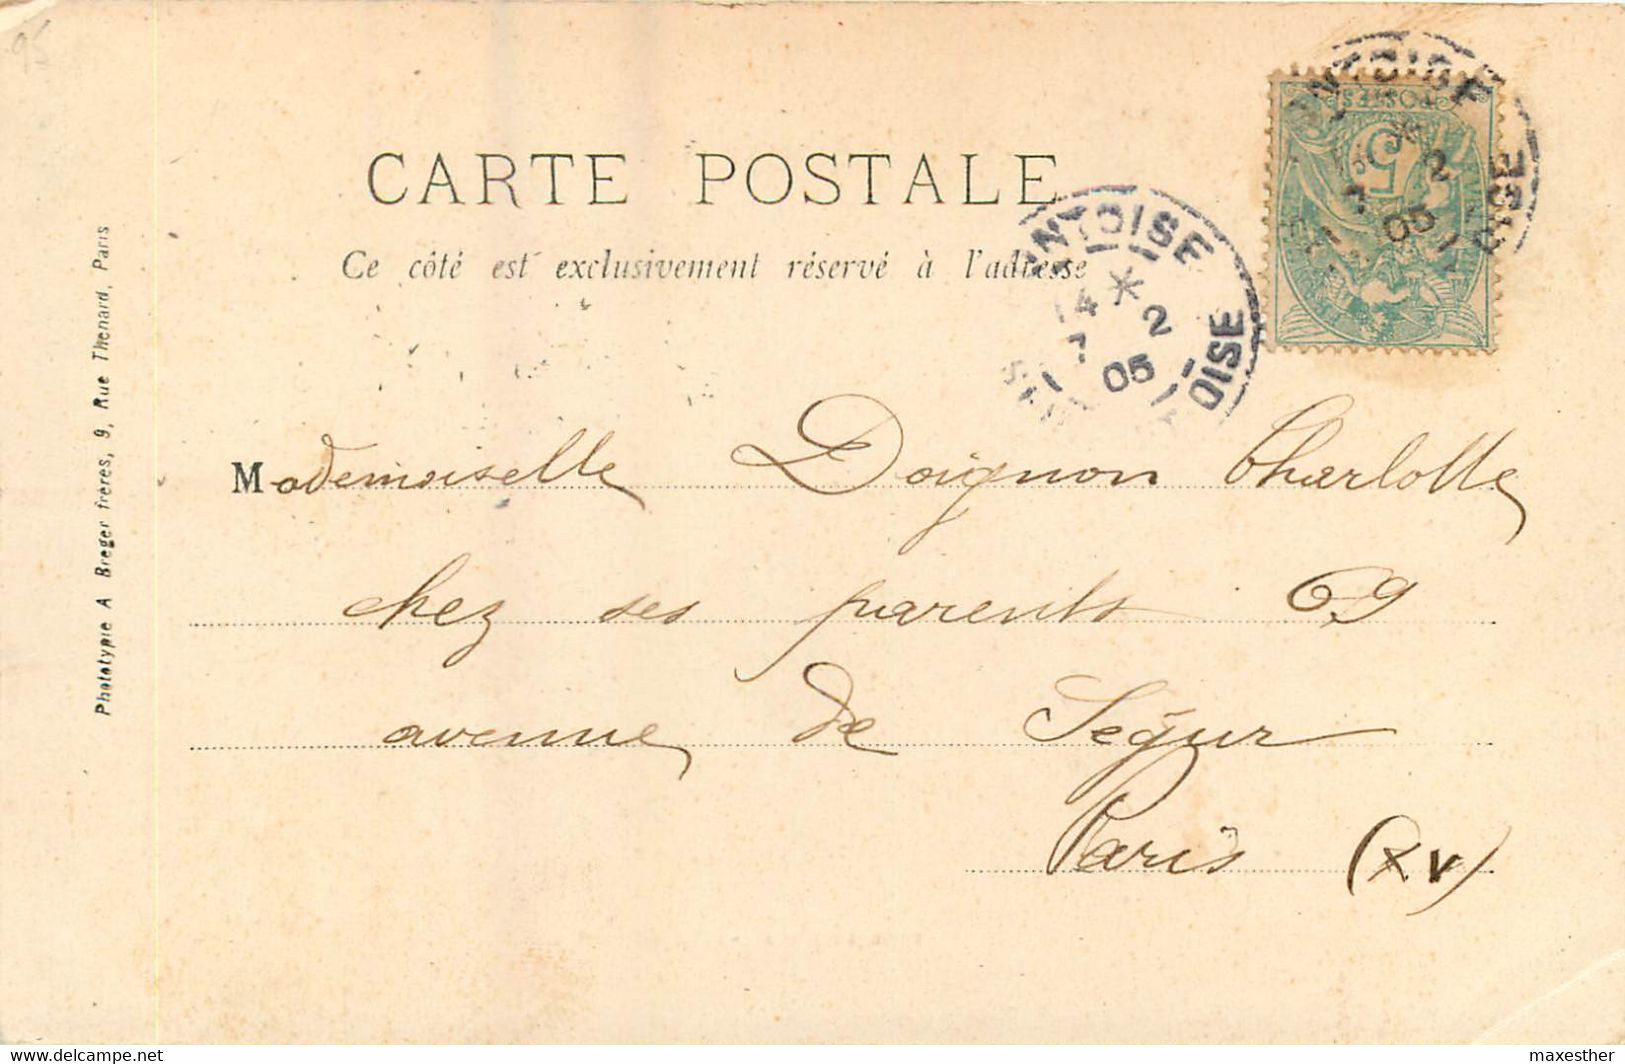 95
CARTE POSTALE
Ce côté est exclusivement réservé à l'adresse
POSTES
5
2
05
OISE
NTOISE
4 *
7 2
05
OISE
Mademoiselle Doignon Charlotte
chez ses parents 69
avenue de Ségur
Paris (XV)
Phototypie A Breger frères, 9, Rue Thenard, Paris
www.delcampe.net
maxesther